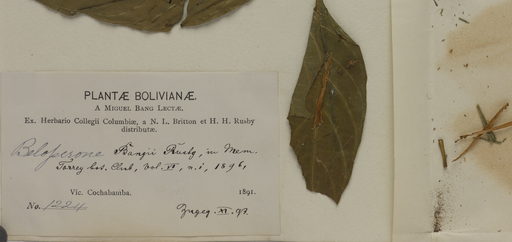 PLANTÆ BOLIVIANÆ.
A MIGUEL BANG LECTÆ.
Ex. Herbario Collegii Columbiæ, a N. L. Britton et H. H. Rusby
distributæ.
Beloperone Bangii Rusby, in Mem.
Torrey bot. Club, Vol. IV, n. i, 1896,
Vic. Cochabamba. 1891.
No. 1224
XI. 97.